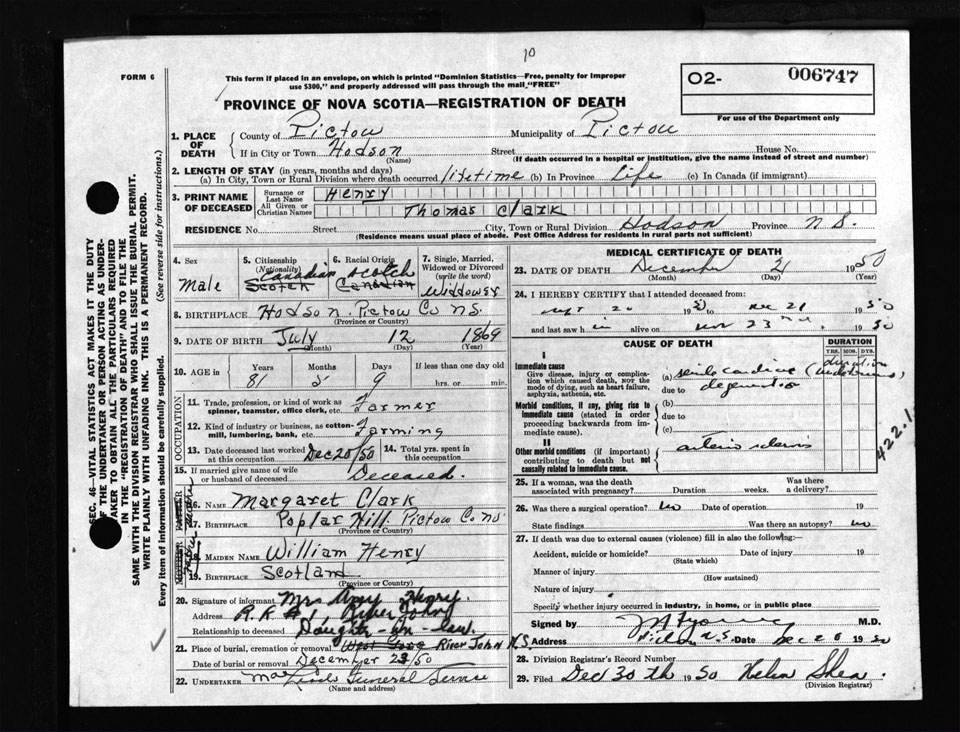 10
FORM 6
This form if placed in an envelope, on which is printed "Dominion Statistics—Free, penalty for improper
use $300," and properly addressed will pass through the mail "FREE"
O2- 006747
For use of the Department only
PROVINCE OF NOVA SCOTIA—REGISTRATION OF DEATH
1. PLACE OF DEATH County of Pictou Municipality of Pictou
If in City or Town Hodson Street House No.
(Name) (If death occurred in a hospital or institution, give the name instead of street and number)
2. LENGTH OF STAY (in years, months and days)
(a) In City, Town or Rural Division where death occurred lifetime (b) In Province Life (c) In Canada (if immigrant)
3. PRINT NAME OF DECEASED Surname or Last Name Henry
All Given or Christian Names Thomas Clark
RESIDENCE No. Street City, Town or Rural Division Hodson Province N S.
(Residence means usual place of abode. Post Office Address for residents in rural parts not sufficient)
SEC. 46—VITAL STATISTICS ACT MAKES IT THE DUTY
OF THE UNDERTAKER OR PERSON ACTING AS UNDER-
TAKER TO OBTAIN ALL THE PARTICULARS REQUIRED
IN THE "REGISTRATION OF DEATH" AND TO FILE THE
SAME WITH THE DIVISION REGISTRAR WHO SHALL ISSUE THE BURIAL PERMIT.
WRITE PLAINLY WITH UNFADING INK. THIS IS A PERMANENT RECORD.
Every item of information should be carefully supplied. (See reverse side for instructions.)
4. Sex Male
5. Citizenship (Nationality) Canadian Scotch
6. Racial Origin Scotch Canadian
7. Single, Married, Widowed or Divorced (write the word) Widdower
8. BIRTHPLACE Hodson Pictou Co N.S.
(Province or Country)
9. DATE OF BIRTH July 12 1869
(Month) (Day) (Year)
10. AGE in Years Months Days If less than one day old
81 5 9 hrs. or min.
OCCUPATION
11. Trade, profession, or kind of work as
spinner, teamster, office clerk, etc. Farmer
12. Kind of industry or business, as cotton-
mill, lumbering, bank, etc. Farming
13. Date deceased last worked at this occupation Dec 20/50
14. Total yrs. spent in this occupation
15. If married give name of wife
or husband of deceased Deceased.
16. NAME Margaret Clark
17. BIRTHPLACE Poplar Hill Pictou Co NS
(Province or Country)
18. MAIDEN NAME William Henry
19. BIRTHPLACE Scotland
(Province or Country)
20. Signature of informant Mrs Henry.
Address R.R # 1, River John
Relationship to deceased Daughter-in-law.
21. Place of burial, cremation or removal River John N.S.
Date of burial or removal December 23/50
22. UNDERTAKER Funeral Service
(Name and address)
MEDICAL CERTIFICATE OF DEATH
23. DATE OF DEATH December 21 1950
(Month) (Day) (Year)
24. I HEREBY CERTIFY that I attended deceased from:
Sept 20 1950 to Dec 21 1950
and last saw h im alive on Nov 23 rd. 1950
CAUSE OF DEATH DURATION
YRS. MOS. DYS.
I
Immediate cause
Give disease, injury or complication which caused death, NOT the mode of dying, such as heart failure, asphyxia, asthenia, etc.
(a) senile cardiac
due to degeneration
duration
Morbid conditions, if any, giving rise to immediate cause (stated in order proceeding backwards from immediate cause).
(b)
due to
(c)
II
Other morbid conditions (if important) contributing to death but not causally related to immediate cause.
arterio sclerosis
422.1
25. If a woman, was the death associated with pregnancy? Duration weeks. Was there a delivery?
26. Was there a surgical operation? no Date of operation 19
State findings Was there an autopsy? no
27. If death was due to external causes (violence) fill in also the following:
Accident, suicide or homicide? Date of injury 19
(State which)
Manner of injury
(How sustained)
Nature of injury
Specify whether injury occurred in industry, in home, or in public place
Signed by M.D.
Address Pictou N.S. Date Dec 26 1950
28. Division Registrar's Record Number
29. Filed Dec 30th 1950 Helen Shea
(Division Registrar)